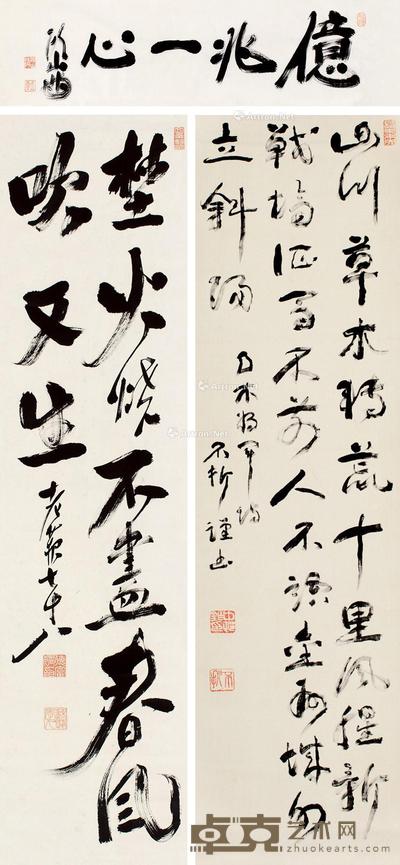 億兆一心
山川草木轉荒十里風腥新
戰場征馬不前人不語金州城外
立斜陽
乃木将軍詩
不折謹書
埜火燒不盡春風
吹又生
老蘇七十八
Artron.Net
卓克艺术网
www.zhuokearts.com